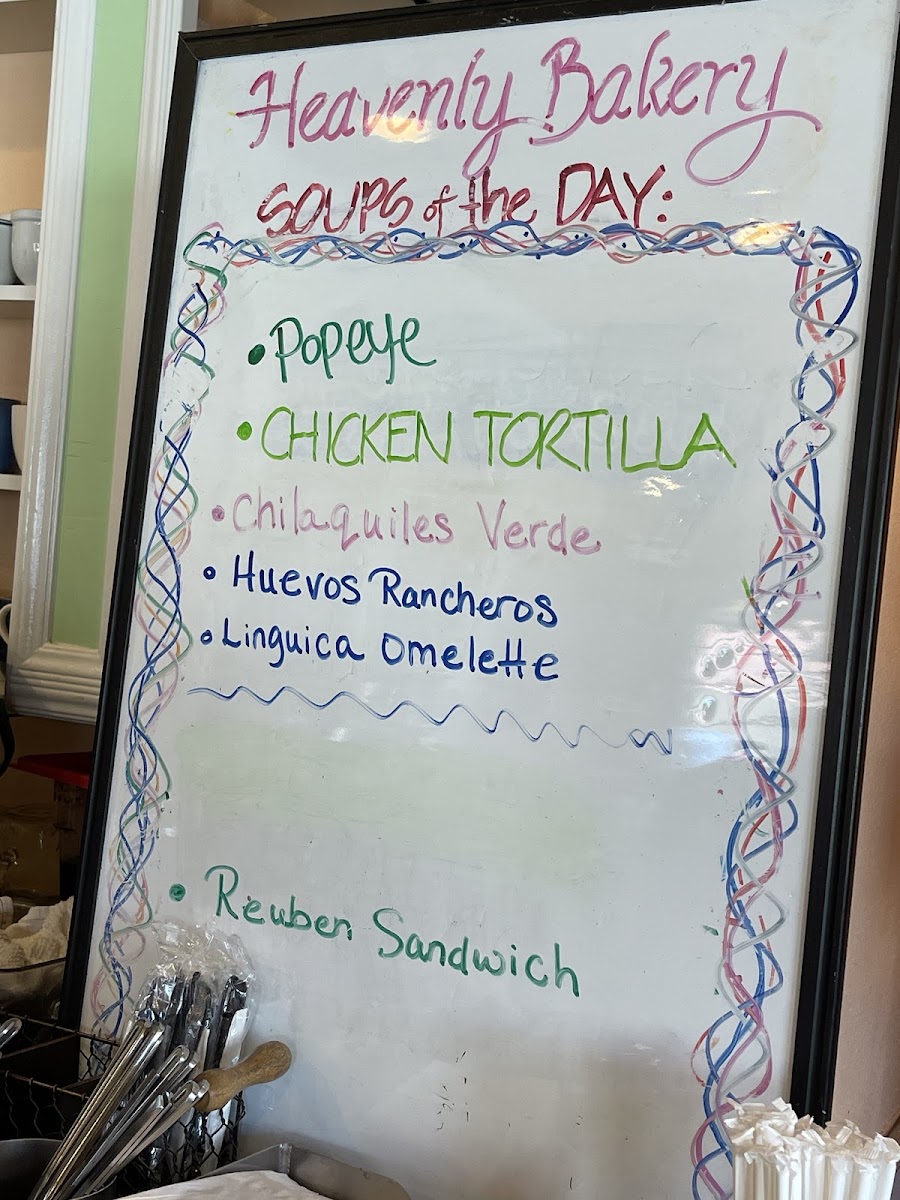 Heavenly Bakery
SOUPS of the DAY:
• Popeye
• CHICKEN TORTILLA
• Chilaquiles Verde
• Huevos Rancheros
• Linguica Omelette
• Reuben Sandwich